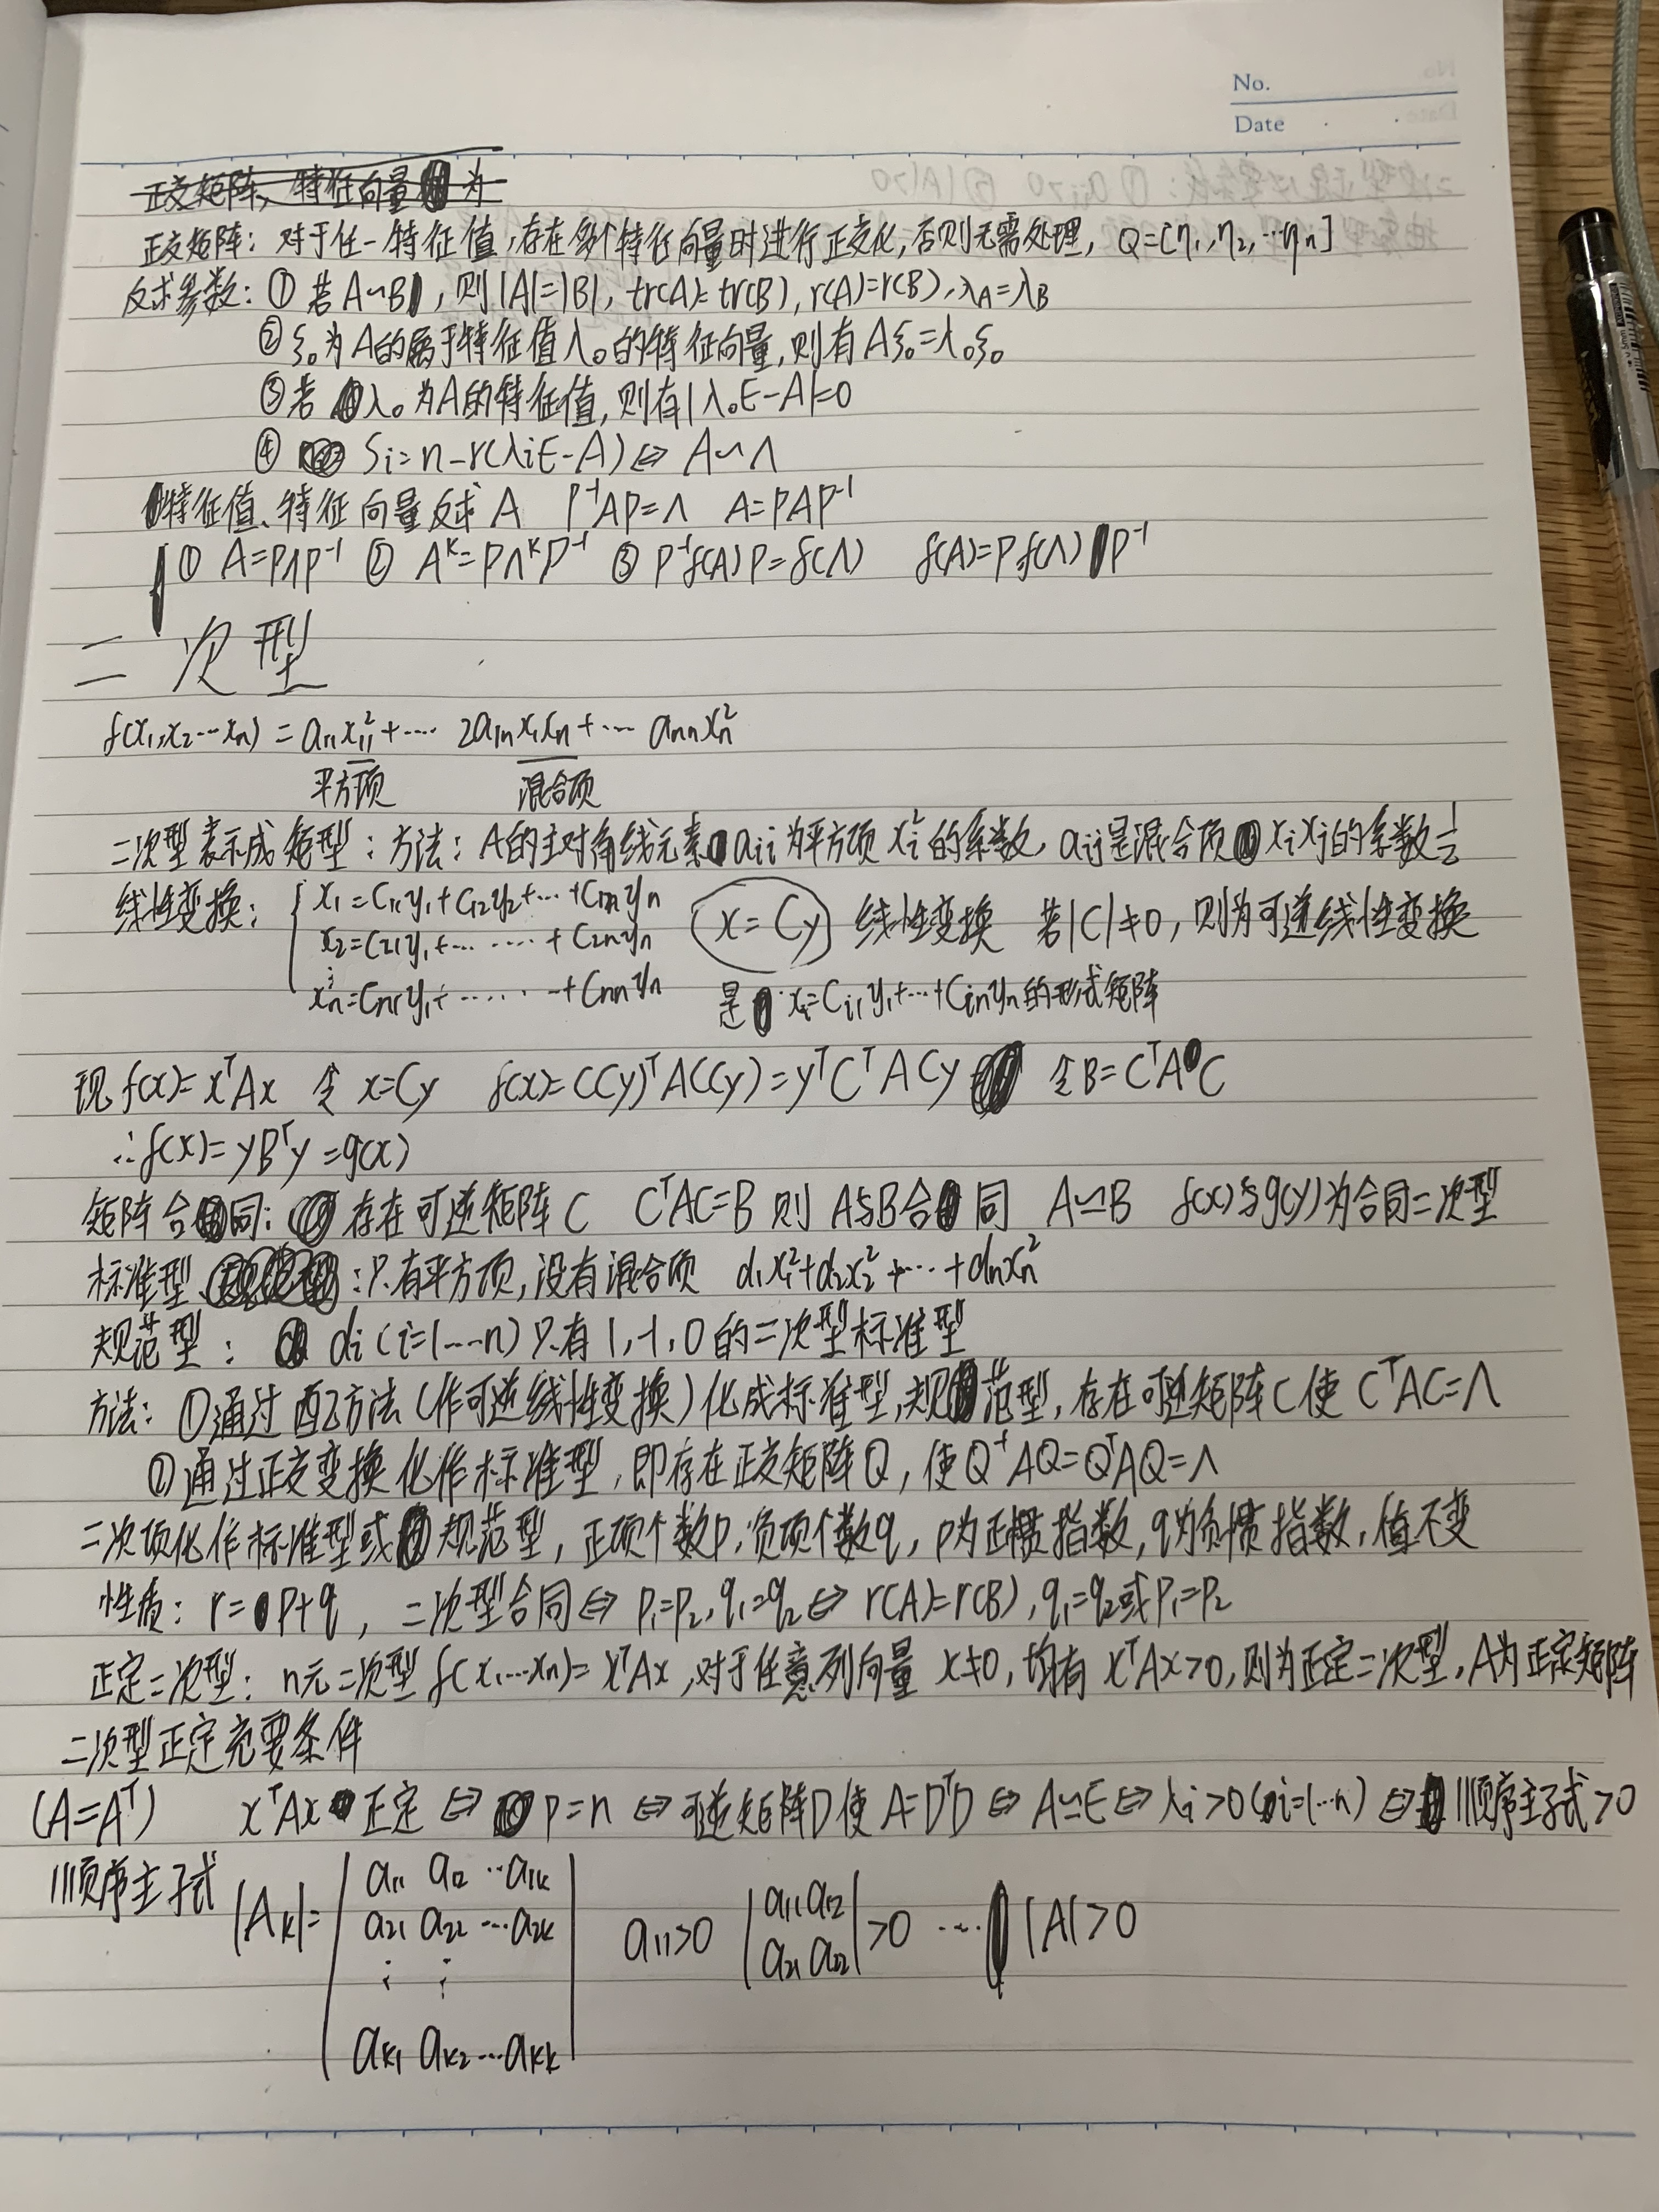 No.
Date
正交矩阵, 特征向量 为
正交矩阵: 对于任一特征值,存在多个特征向量时进行正交化,否则无需处理, Q=[η₁,η₂,…ηₙ]
反求参数: ① 若A∽B, 则|A|=|B|, tr(A)=tr(B), r(A)=r(B), λA=λB
② ξ₀为A的属于特征值λ₀的特征向量,则有Aξ₀=λ₀ξ₀
③若λ₀为A的特征值,则有|λ₀E-A|=0
④ Si=n-r(λiE-A)⇔A∽Λ
特征值、特征向量反求A P⁻¹AP=Λ A=PΛP⁻¹
① A=PΛP⁻¹ ② Aᵏ=PΛᵏP⁻¹ ③ P⁻¹f(A)P=f(Λ) f(A)=Pf(Λ)P⁻¹
二次型
f(x₁,x₂…xₙ)=a₁₁x₁₁²+…. 2a₁ₙx₁xₙ+… aₙₙxₙ²
平方项 混合项
二次型表示成矩型: 方法: A的主对角线元素aii为平方项xi²的系数, aij是混合项xixj的系数½
线性变换: { x₁=C₁₁y₁+C₁₂y₂+…+C₁ₙyₙ x=Cy 线性变换 若|C|≠0, 则为可逆线性变换
x₂=C₂₁y₁+…. …. +C₂ₙyₙ
⋮
xₙ=Cₙ₁y₁+…… +Cₙₙyₙ 是 xi=Ci₁y₁+…+Cinyₙ的形式矩阵
现f(x)=xᵀAx 令 x=Cy f(x)=(Cy)ᵀA(Cy)=yᵀCᵀACy 令B=CᵀAC
∴f(x)=yBᵀy=g(x)
矩阵合同: 存在可逆矩阵C CᵀAC=B 则 A与B合同 A≃B f(x)与g(y)为合同二次型
标准型: 只有平方项,没有混合项 d₁x₁²+d₂x₂²+…+dₙxₙ²
规范型: di(i=1…n)只有1,-1,0的二次型标准型
方法: ①通过配方法(作可逆线性变换)化成标准型,规范型,存在可逆矩阵C使CᵀAC=Λ
②通过正交变换化作标准型,即存在正交矩阵Q, 使Q⁻¹AQ=QᵀAQ=Λ
二次项化作标准型或规范型, 正项个数p,负项个数q, p为正惯指数,q为负惯指数,值不变
性质: r=p+q, 二次型合同⇔p₁=p₂,q₁=q₂⇔r(A)=r(B),q₁=q₂或p₁=p₂
正定二次型: n元二次型f(x₁…xₙ)=xᵀAx,对于任意列向量x≠0,均有xᵀAx>0,则为正定二次型,A为正定矩阵
二次型正定充要条件
(A=Aᵀ) xᵀAx正定⇔p=n⇔可逆矩阵D使A=DᵀD⇔A≃E⇔λi>0(i=1…n)⇔顺序主子式>0
顺序主子式 |Aₖ|= | a₁₁ a₁₂ …a₁ₖ | a₁₁>0 |a₁₁ a₁₂| >0 … |A|>0
| a₂₁ a₂₂ …a₂ₖ | |a₂₁ a₂₂|
⋮ ⋮
| aₖ₁ aₖ₂…aₖₖ |